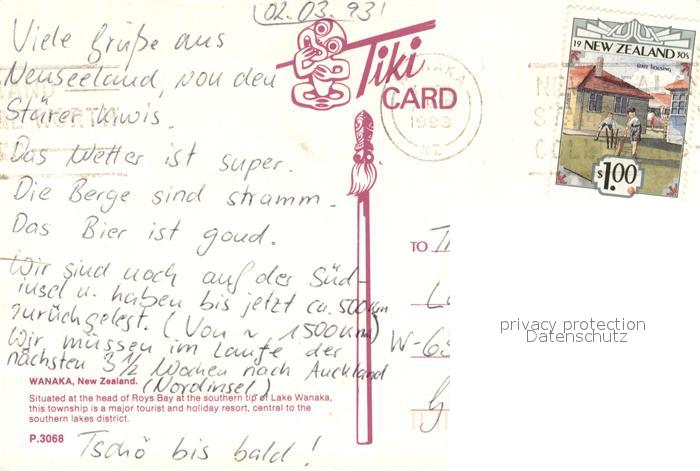 02.03.93
Viele Grüße aus
Neuseeland, von den
Stürer Kiwis.
Das Wetter ist super.
Die Berge sind stramm.
Das Bier ist goud.
Wir sind noch auf der Süd-
insel u. haben bis jetzt ca. 500km
zurückgelegt. (Von ~ 1500km)
Wir müssen im Laufe der
nächsten 3 1/2 Wochen nach Auckland
(Nordinsel)
WANAKA, New Zealand.
Situated at the head of Roys Bay at the southern tip of Lake Wanaka,
this township is a major tourist and holiday resort, central to the
southern lakes district.
P.3068
Tschö bis bald!
Tiki
CARD
WANAKA
1993
NZ
19 NEW ZEALAND 30s
STATE HOUSING
$1.00
TO
W-65
privacy protection
Datenschutz